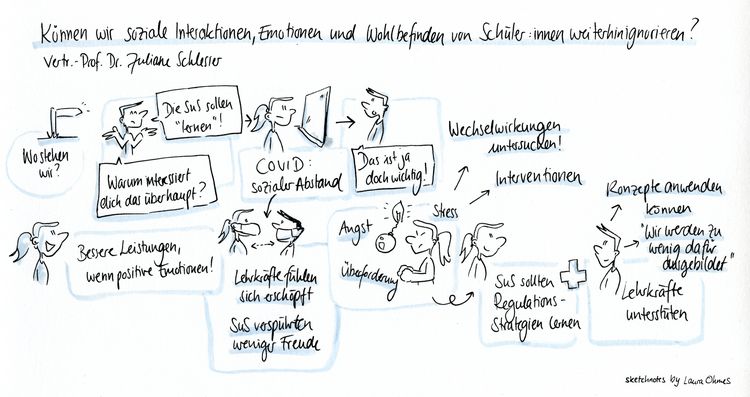 Können wir soziale Interaktionen, Emotionen und Wohlbefinden von Schüler:innen weiterhin ignorieren?
Vertr.-Prof. Dr. Juliane Schlesier
Wo stehen
wir?
Die SuS sollen
"lernen"!
Warum interessiert
dich das überhaupt?
COVID:
sozialer Abstand
Das ist ja
doch wichtig!
Wechselwirkungen
untersuchen!
Interventionen
Konzepte anwenden
können
"Wir werden zu
wenig dafür
ausgebildet"
Bessere Leistungen,
wenn positive Emotionen!
Lehrkräfte fühlen
sich erschöpft
SuS verspürten
weniger Freude
Angst
Stress
Überforderung
SuS sollten
Regulations-
Strategien lernen
Lehrkräfte
unterstüten
sketchnotes by Laura Ohmes